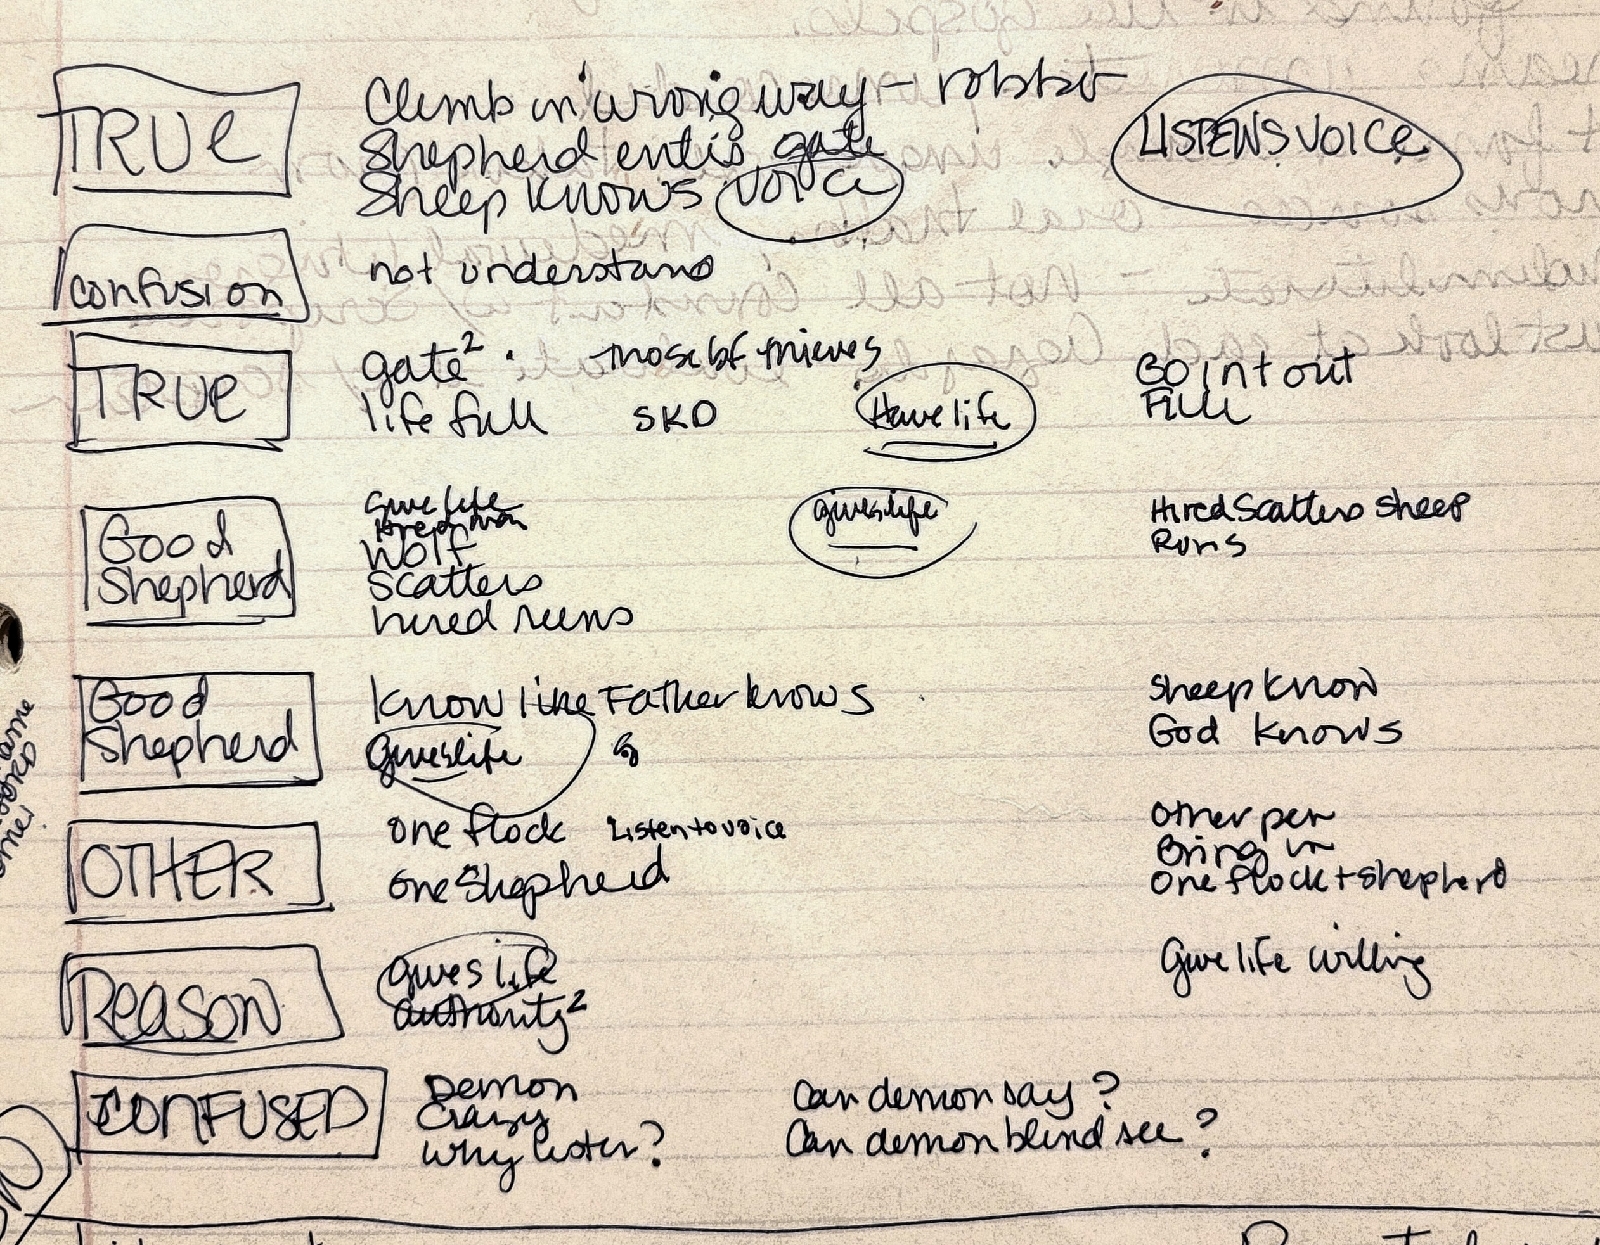 TRUE
Climb in wrong way - robber
Shepherd enters gate
Sheep knows voice
LISTENS VOICE
confusion
not understand
TRUE
gate² . those bf thieves
life full SKD
Have life
Go in + out
Full
Good
Shepherd
Give life
Wolf
Scatters
hired runs
gives life
Hired Scatters Sheep
Runs
Good
Shepherd
Know like Father knows
Gives life
Sheep know
God knows
OTHER
One flock Listen to voice
One Shepherd
Other pen
Bring in
One flock + shepherd
Reason
gives life
authority²
Give life willing
CONFUSED
Demon
Crazy
Why listen?
Can demon say?
Can demon blind see?